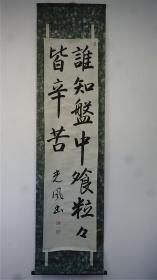 誰知盤中飧粒々
皆辛苦
光風書